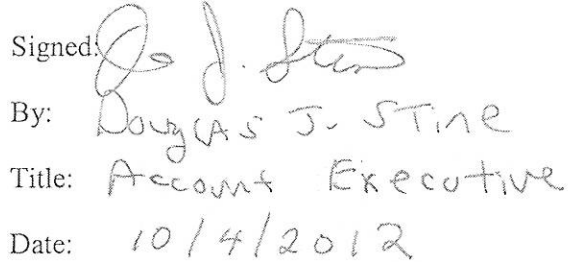 Signed:
By: Douglas J. Stine
Title: Account Executive
Date: 10/4/2012